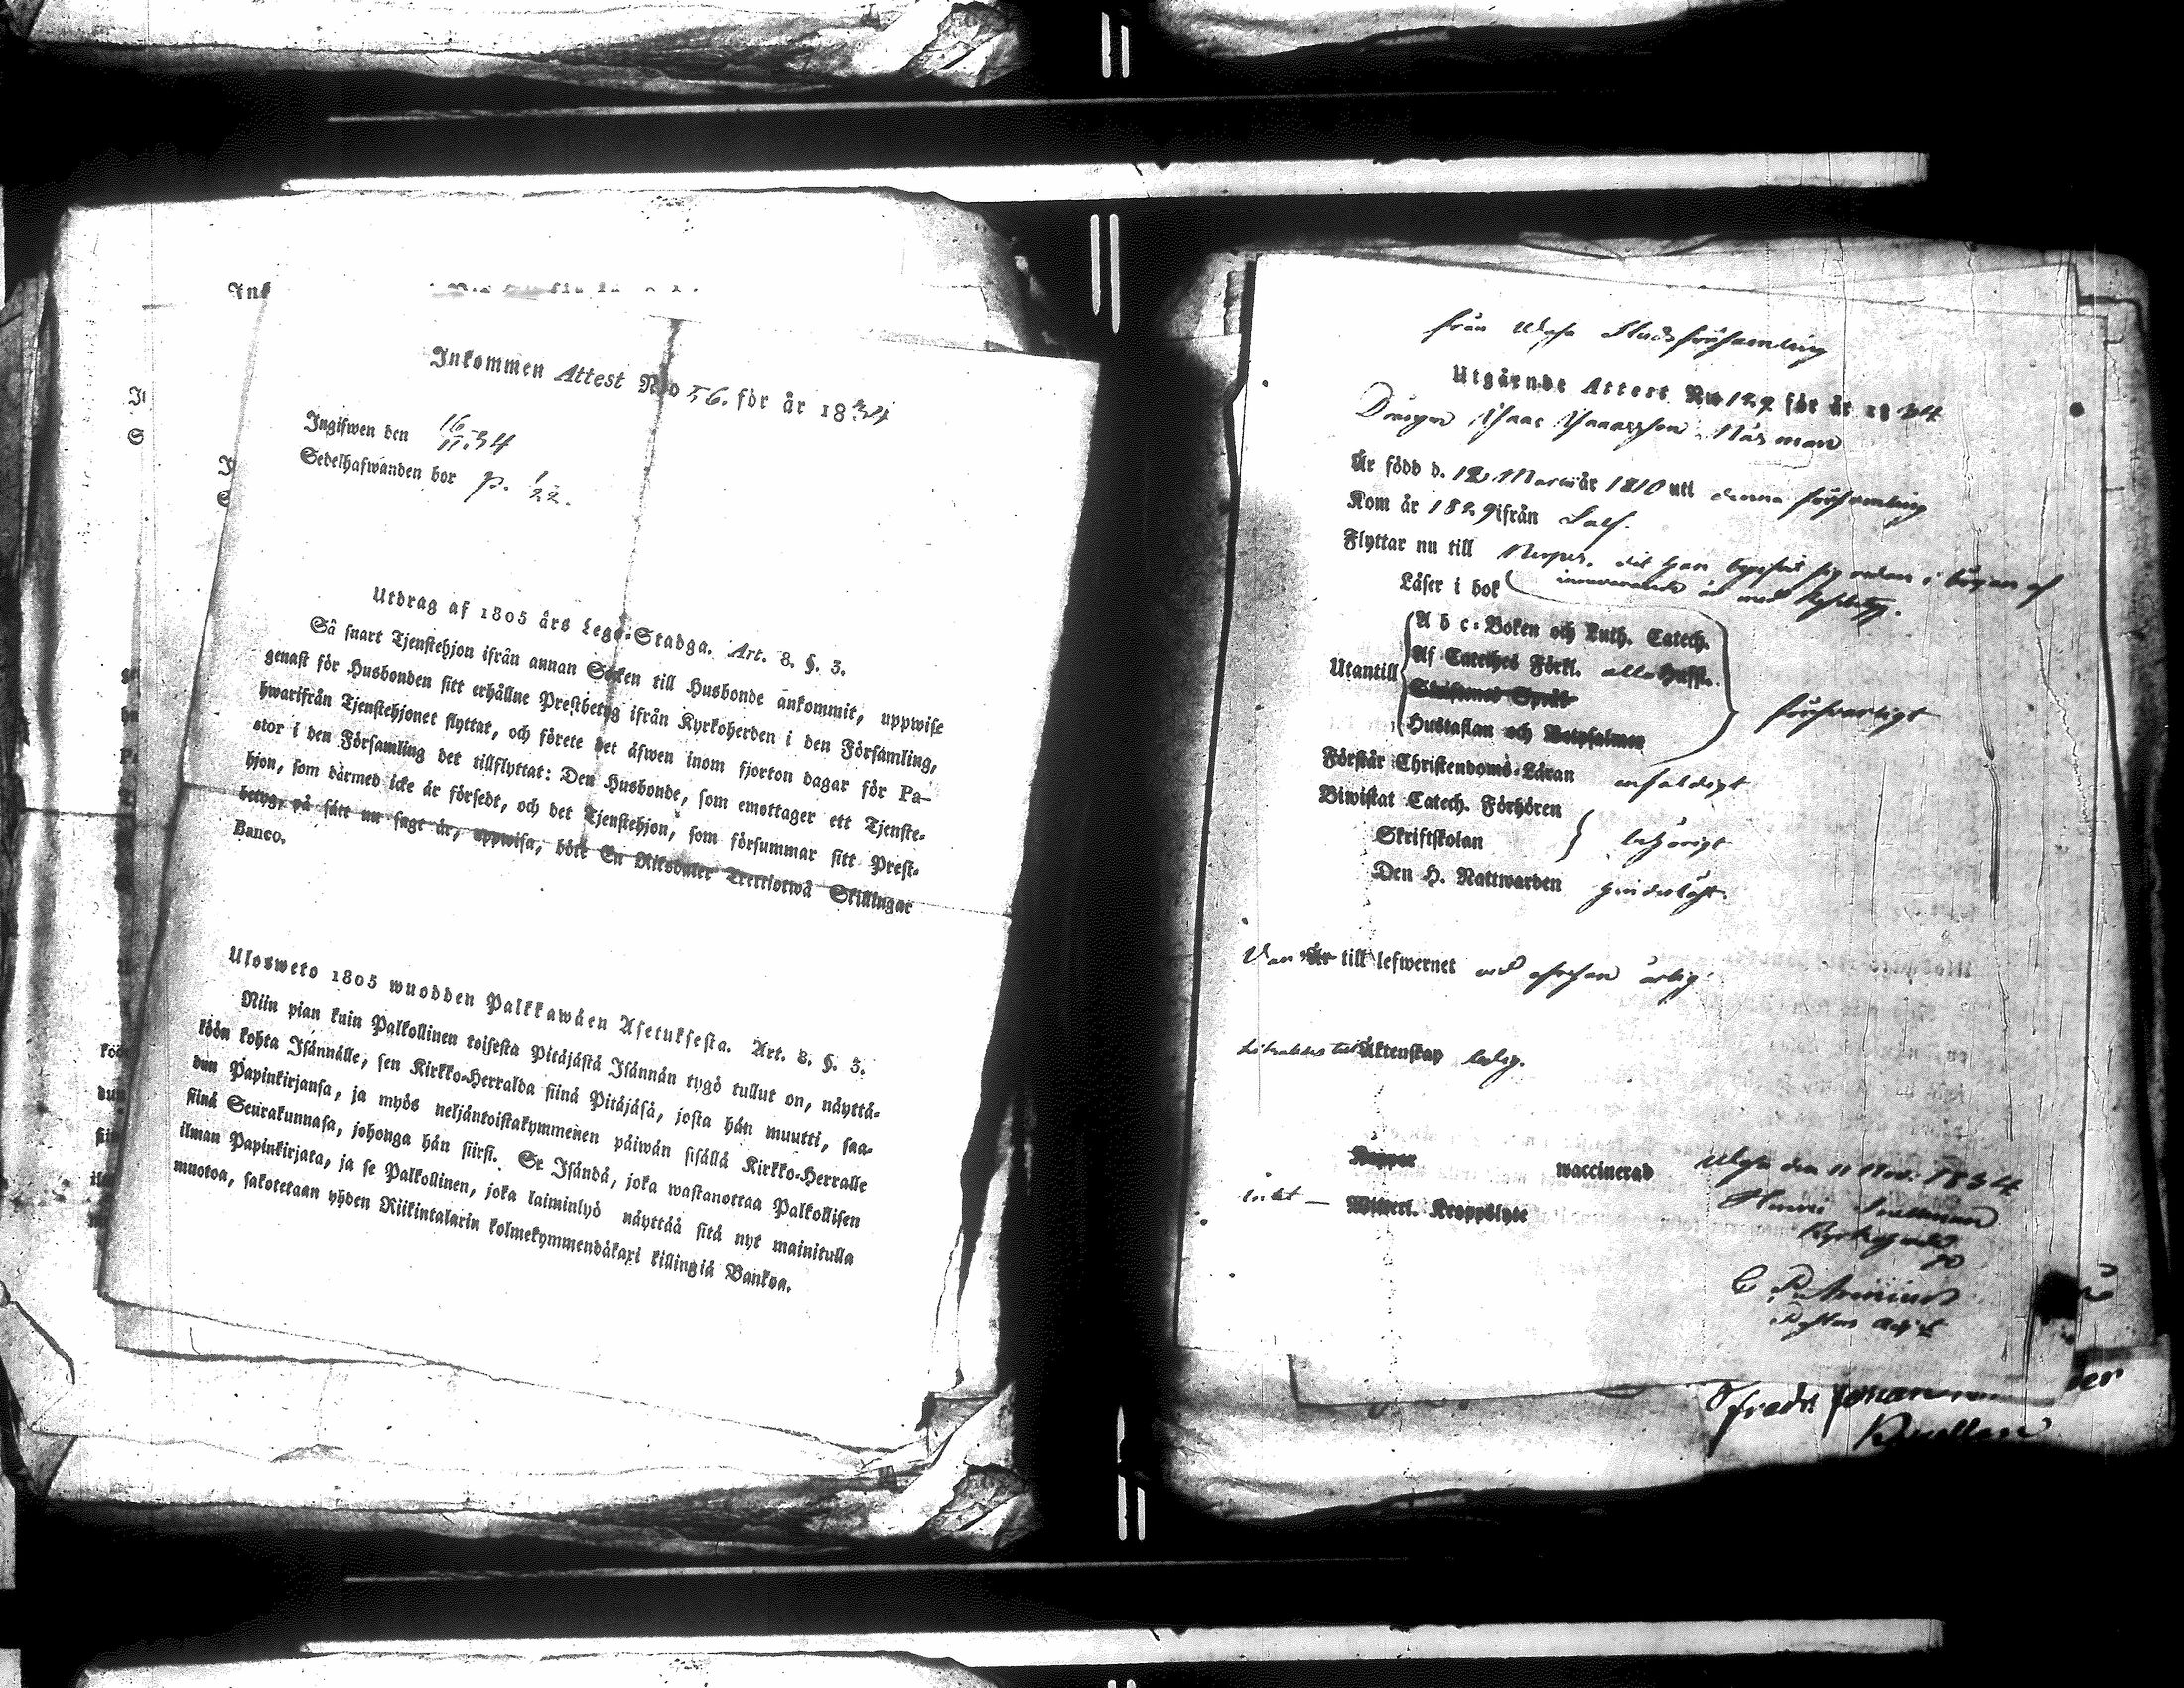 Ink
Inkommen Attest No 56. för år 1834
Ingifwen den 16/11.34
Sedelhafwanden bor p. 1/22.
Utdrag af 1805 års Lego-Stadga. Art. 8. §. 3.
Så snart Tjenstehjon ifrån annan Socken till Husbonde ankommit, uppwise
genast för Husbonden sitt erhållne Prestbetyg ifrån Kyrkoherden i den Församling,
hwarifrån Tjenstehjonet flyttat, och förete det äfwen inom fjorton dagar för Pa-
stor i den Församling det tillflyttat: Den Husbonde, som emottager ett Tjenste-
hjon, som därmed icke är försedt, och det Tjenstehjon, som försummar sitt Prest-
betyg, på sätt nu sagt är, uppwisa, böte En Riksdaler Trettiotwå Skillingar
Banco.
Ulosweto 1805 wuodden Palkkawäen Asetuksesta. Art. 8. §. 3.
Niin pian kuin Palkollinen toisesta Pitäjästä Isännän tygö tullut on, näyttä-
köön kohta Isännälle, sen Kirkko-Herralda siinä Pitäjäsä, josta hän muutti, saa-
dun Papinkirjansa, ja myös neljäntoistakymmenen päiwän sisällä Kirkko-Herralle
siinä Seurakunnasa, johonga hän siirsi. Se Isändä, joka wastanottaa Palkollisen
ilman Papinkirjata, ja se Palkollinen, joka laiminlyö näyttää sitä nyt mainitulla
muotoa, sakotetaan yhden Riikintalarin kolmekymmendäkaxi killingiä Bankoa.
från Wasa Stadsförsamling
Utgående Attest No 129 för år 1834
Drängen Isaac Isaacsson Näsman
Är född d. 12 Martii år 1810 uti denna församling
Kom år 1829 ifrån Solf.
Flyttar nu till
innevarande år med
Läser i bok
A b c-Boken och Luth. Catech.
Utantill Af Cateches Förkl. alla Hufst.
Skriftenes Språk
Hustaflan och Botpsalmer
försvarligt
Förstår Christendoms-Läran enfaldigt
Biwistat Catech. Förhören
Skriftskolan behörigt
Den H. Nattwarden
till lefwernet ärlig
Äktenskap ledig.
Koppor waccinerad
Wasa den 11 Nov: 1834
intet — Witterl. Kroppslyte
Henric
Pastors Adj:t